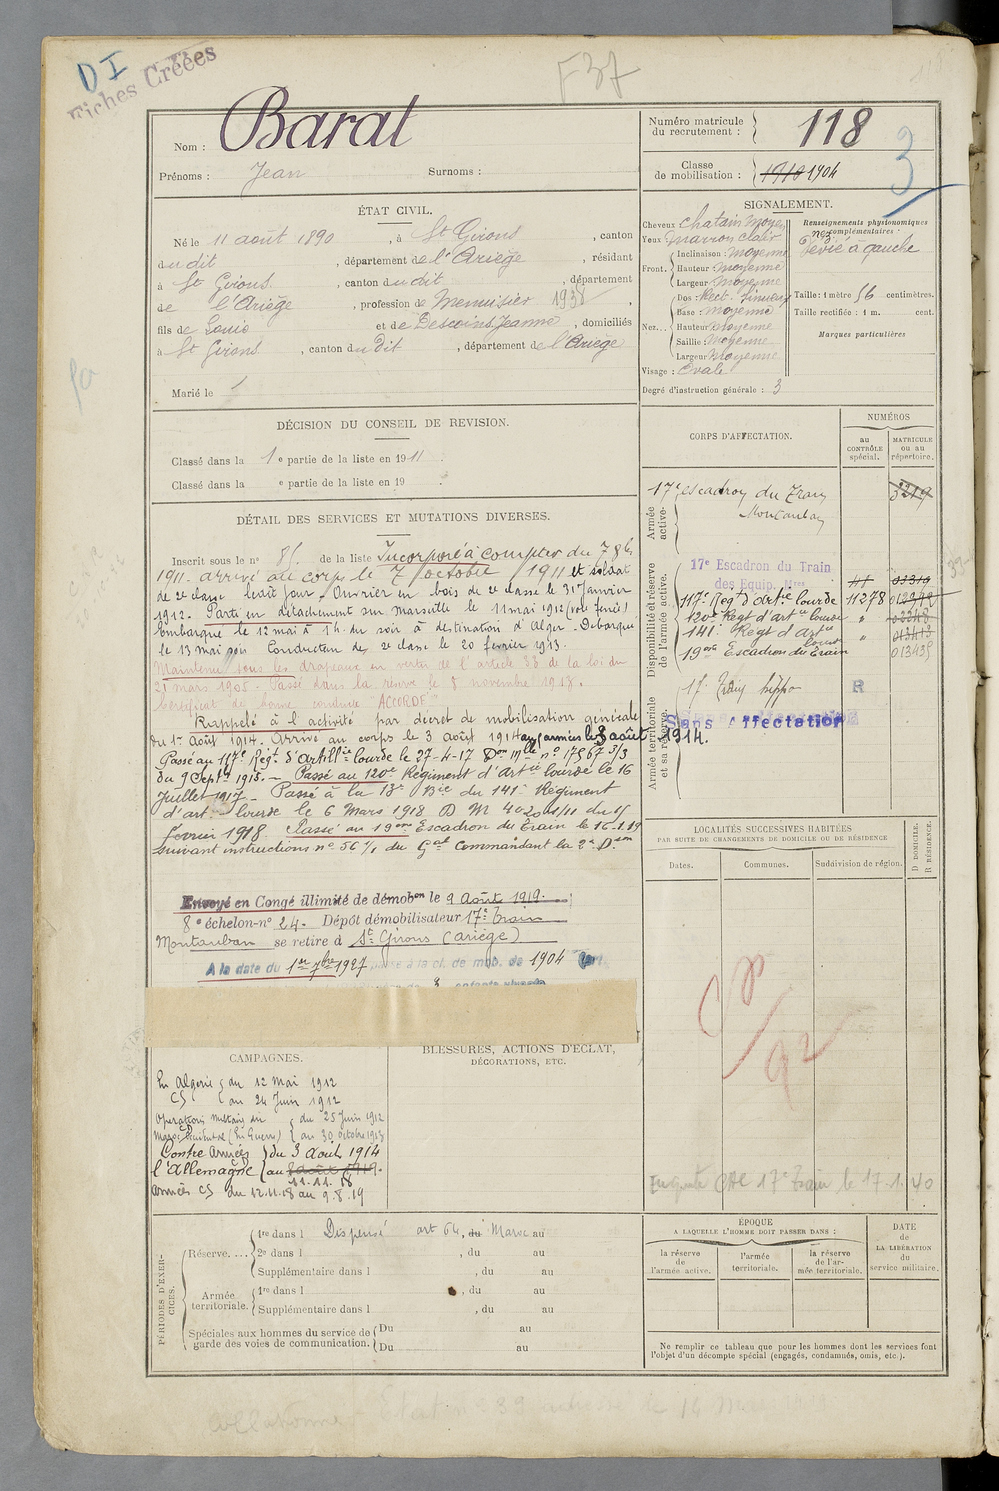 DI
Fiches Créées
F37
Nom : Barat
Prénoms : Jean Surnoms :
Numéro matricule
du recrutement : 118
Classe
de mobilisation : 1910 1904
3
ÉTAT CIVIL.
Né le 11 août 1890, à St Girons, canton
du dit, département de l'Ariège, résidant
à St Girons, canton du dit, département
de l'Ariège, profession de Menuisier 1938
fils de Louis et de Descoins Jeanne, domiciliés
à St Girons, canton du dit, département de l'Ariège
Marié le
SIGNALEMENT.
Cheveux chatain moyen
Yeux marron clair
Front. Inclinaison : moyenne
Hauteur moyenne
Largeur moyenne
Nez... Dos : Rect. Sinueux
Base : moyenne
Hauteur moyenne
Saillie : moyenne
Largeur moyenne
Visage : Ovale
Degré d'instruction générale : 3
Renseignements physionomiques
complémentaires :
nez
dévié à gauche
Taille : 1 mètre 56 centimètres.
Taille rectifiée : 1 m. cent.
Marques particulières
DÉCISION DU CONSEIL DE REVISION.
Classé dans la 1e partie de la liste en 1911.
Classé dans la e partie de la liste en 19 .
DÉTAIL DES SERVICES ET MUTATIONS DIVERSES.
Inscrit sous le no 85. de la liste Incorporé à compter du 7 8bre
1911. arrivé au corps le 7 octobre 1911 et soldat
de 2e classe ledit jour. Ouvrier en bois de 2e classe le 31 Janvier
1912. Parti en détachement sur Marseille le 11 mai 1912 (voie ferrée)
Embarqué le 12 mai à 1 h. du soir à destination d'Alger. Débarqué
le 13 mai soir Conducteur de 2e classe le 20 février 1913.
Maintenu sous les drapeaux en vertu de l'article 33 de la loi du
21 mars 1905. Passé dans la réserve le 8 novembre 1913.
Certificat de bonne conduite "ACCORDÉ"
Rappelé à l'activité par décret de mobilisation générale
du 1er Août 1914. Arrivé au corps le 3 août 1914 aux armées le 8 août 1914.
Passé au 117e Régt. d'Artillie lourde le 27-4-17 Don mlle no 17567 3/3
du 9 Septbre 1915. - Passé au 120e Régiment d'Artie lourde le 16
Juillet 1917 - Passé à la 13e Bie du 141e Régiment
d'art. lourde le 6 Mars 1918 D M 4020 1/11 du 15
février 1918. Passé au 19eme Escadron du Train le 16-1-19
suivant instructions no 56 1/1 du Gal Commandant la 2e Don
Envoyé en Congé illimité de démobon le 9 Août 1919.
8e échelon-no 24. Dépôt démobilisateur 17e Train
Montauban se retire à St Girons (Ariège)
A la date du 1er 7bre 1927 passé à la cl. de mob. de 1904
CORPS D'AFFECTATION.
NUMÉROS
au
CONTRÔLE
spécial.
MATRICULE
ou au
répertoire.
Armée
active.
17e escadron du Train 3219
Montauban
Disponibilité et réserve
de l'armée active.
17e Escadron du Train
des Equip. Mres
117e Régt d'artie lourde 11278
120e Régt d'artie lourde "
141e Régt d'artie lourde " 013413
19eme Escadron du Train 013435
Armée territoriale
et sa réserve.
17e Train hippo R
Sans Affectation
LOCALITÉS SUCCESSIVES HABITÉES
PAR SUITE DE CHANGEMENTS DE DOMICILE OU DE RÉSIDENCE
Dates.
Communes.
Subdivision de région.
D DOMICILE.
R RÉSIDENCE.
CAMPAGNES.
En Algérie du 12 Mai 1912
CS au 24 Juin 1912
Opérations militaires du du 25 Juin 1912
Maroc Occidental (En Guerre) au 30 octobre 1913
Contre Armées du 3 Août 1914
l'Allemagne au 8 août 1919.
11.11.18
Armées CS du 12.11.18 au 9.8.19
BLESSURES, ACTIONS D'ÉCLAT,
DÉCORATIONS, ETC.
CAC 17e Train le 17.1.40
PÉRIODES D'EXERCICES.
Réserve. ... 1re dans l Dispensé art 64, du Maroc au
2e dans l , du au
Supplémentaire dans l , du au
Armée
territoriale. 1re dans l , du au
Supplémentaire dans l , du au
Spéciales aux hommes du service de
garde des voies de communication. Du au
Du au
ÉPOQUE
A LAQUELLE L'HOMME DOIT PASSER DANS :
la réserve
de
l'armée active.
l'armée
territoriale.
la réserve
de l'ar-
mée territoriale.
DATE
de
LA LIBÉRATION
du
service militaire.
Ne remplir ce tableau que pour les hommes dont les services font
l'objet d'un décompte spécial (engagés, condamnés, omis, etc.).